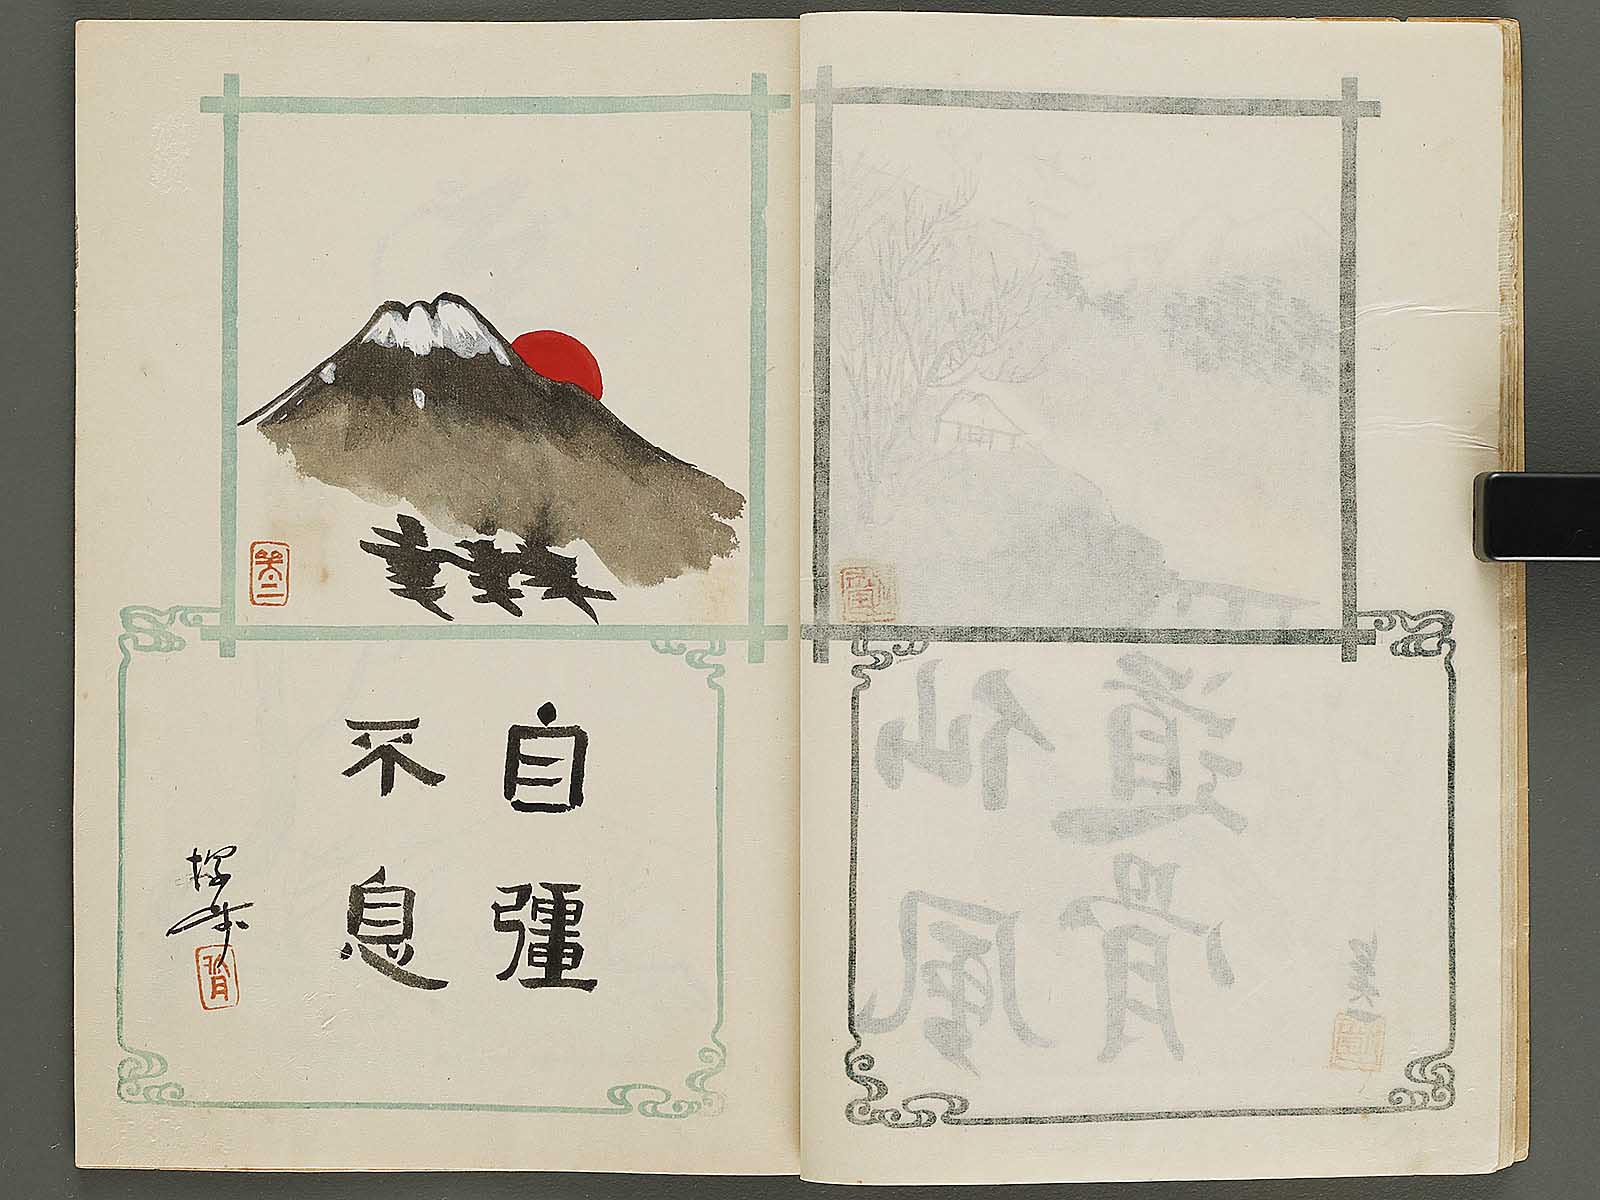 仙風
道骨
自彊
不息